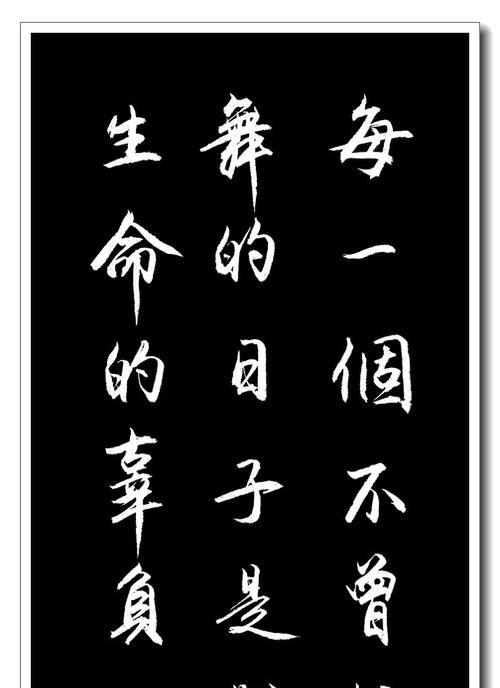 每一個不曾
舞的日子是
生命的辜負